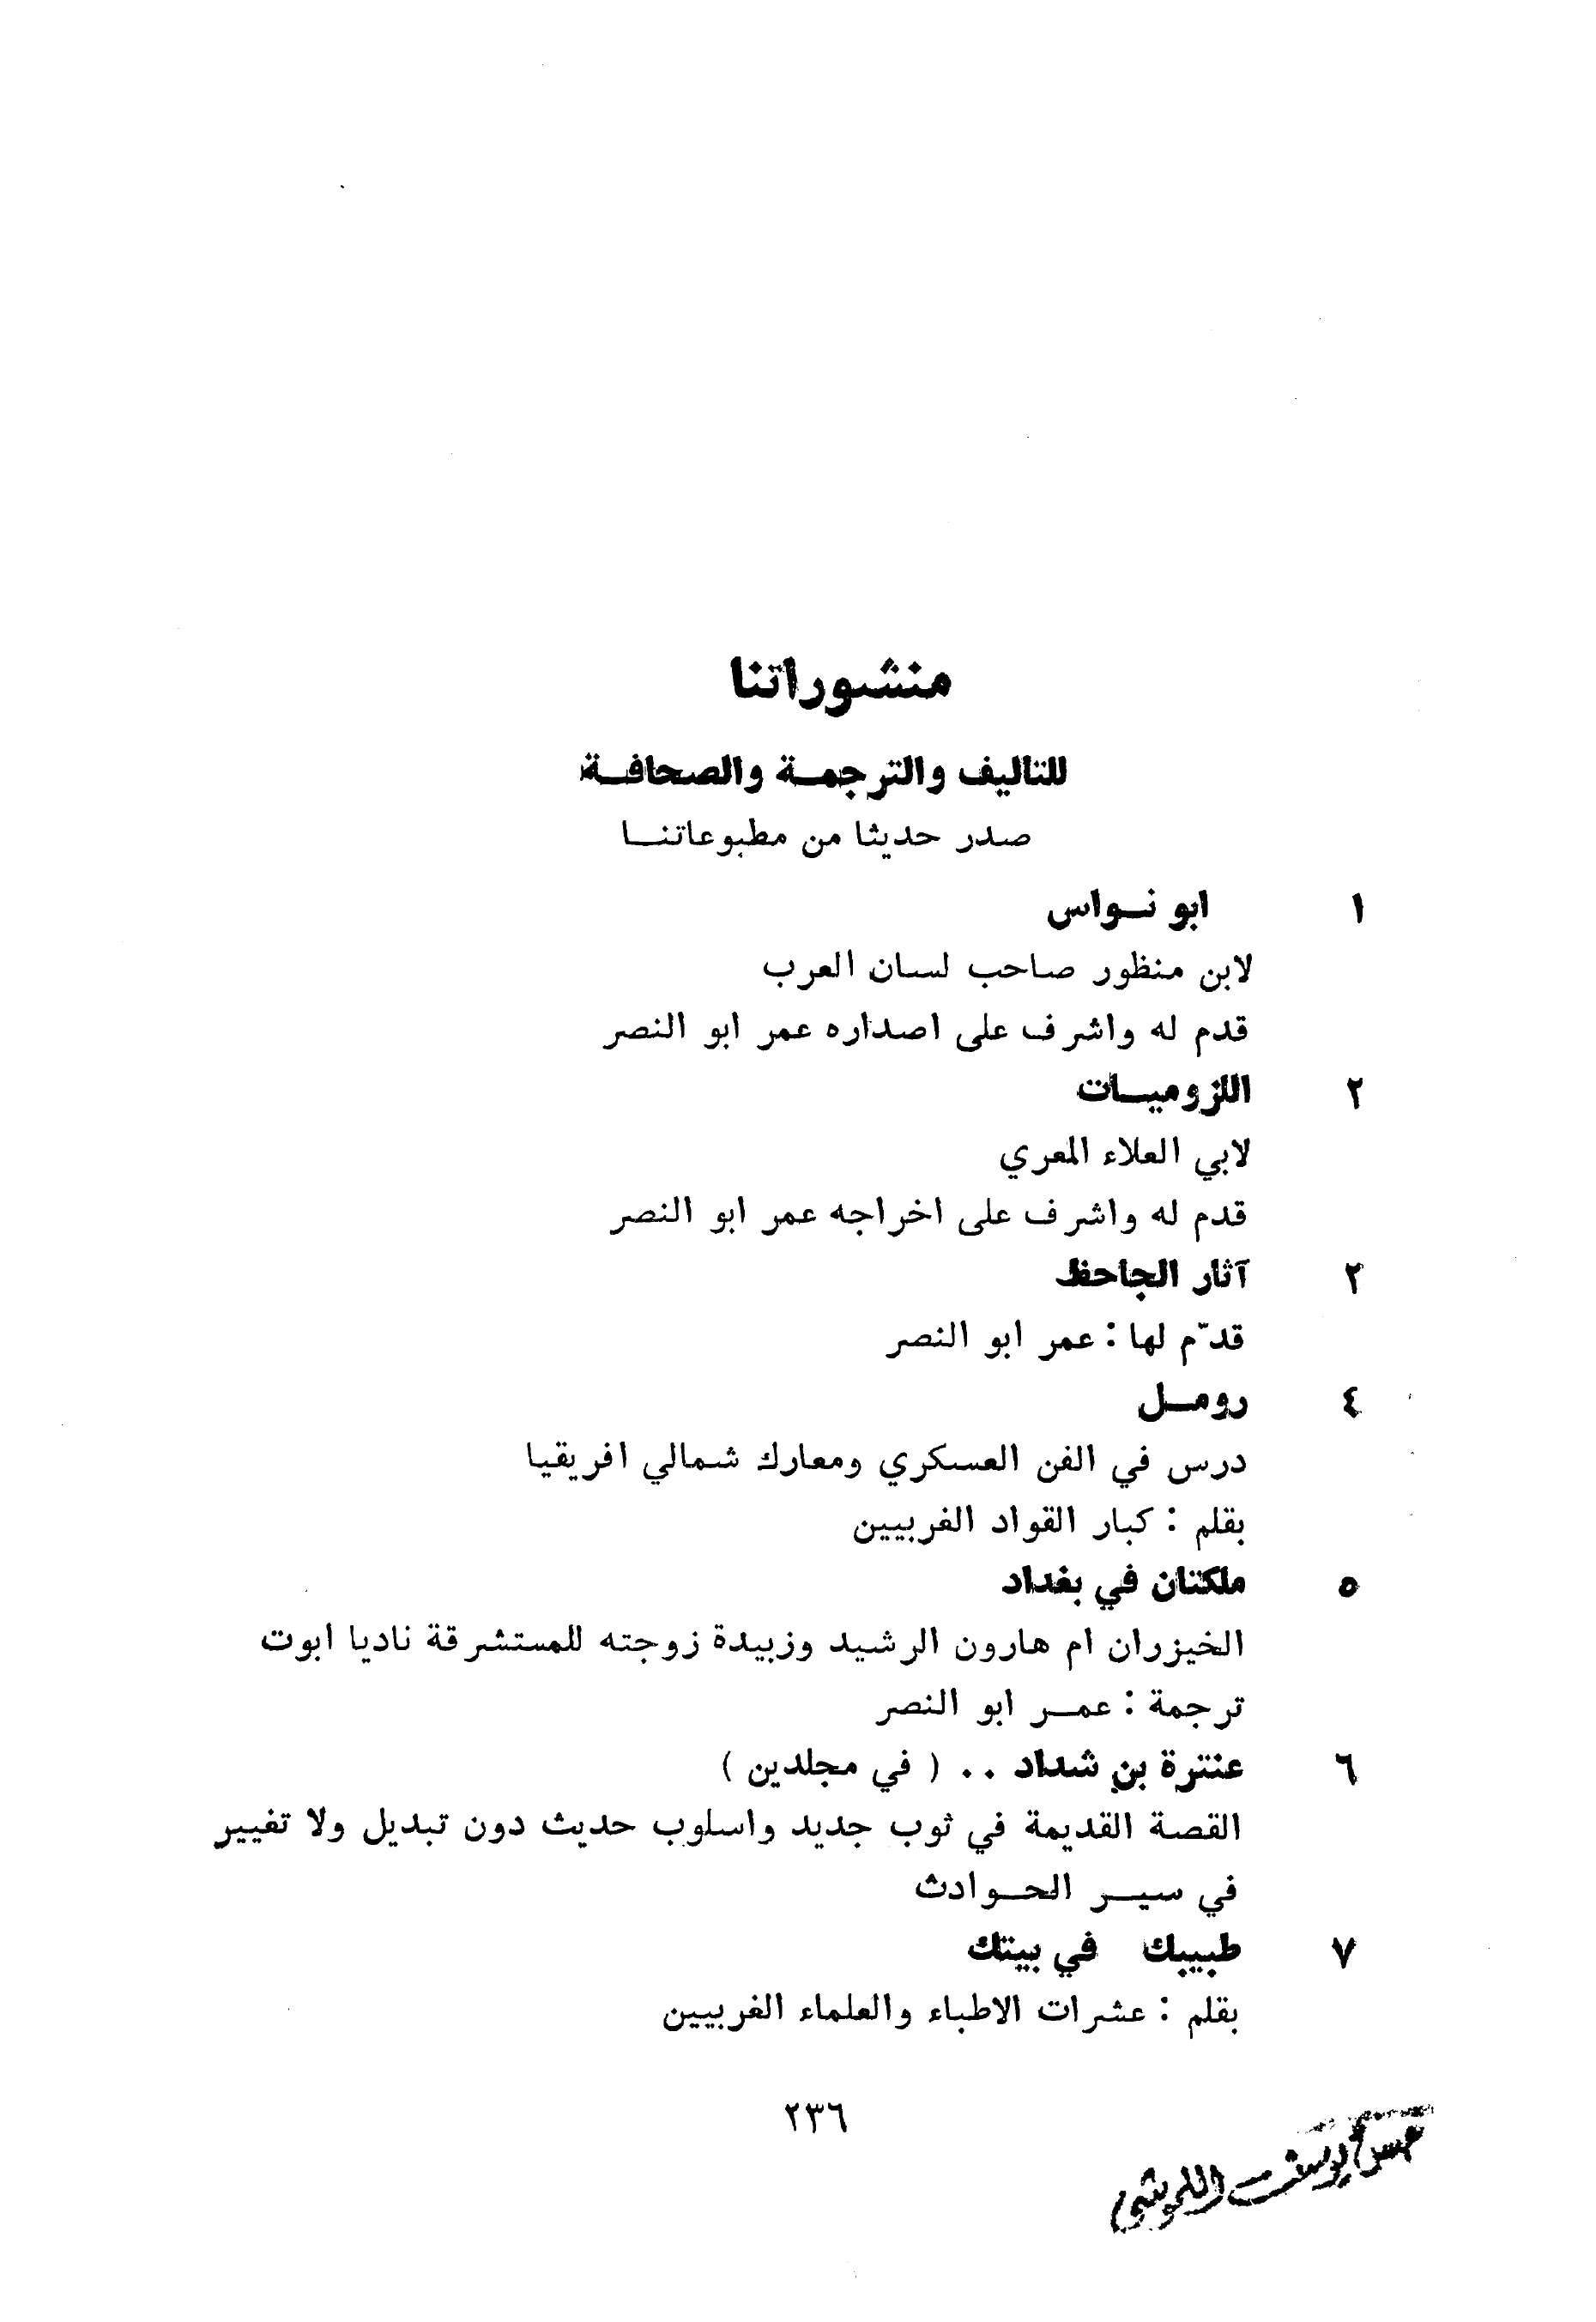 منشوراتنا
للتاليف والترجمة والصحافة
صدر حديثا من مطبوعاتنا
١ ابو نواس
لابن منظور صاحب لسان العرب
قدم له واشرف على اصداره عمر ابو النصر
٢ اللزوميات
لابي العلاء المعري
قدم له واشرف على اخراجه عمر ابو النصر
٢ آثار الجاحظ
قدّم لها : عمر ابو النصر
٤ رومل
درس في الفن العسكري ومعارك شمالي افريقيا
بقلم : كبار القواد الغربيين
٥ ملكتان في بغداد
الخيزران ام هارون الرشيد وزبيدة زوجته للمستشرقة ناديا ابوت
ترجمة : عمر ابو النصر
٦ عنترة بن شداد . . ( في مجلدين )
القصة القديمة في ثوب جديد واسلوب حديث دون تبديل ولا تغيير
في سير الحوادث
٧ طبيبك في بيتك
بقلم : عشرات الاطباء والعلماء الغربيين
٢٣٦